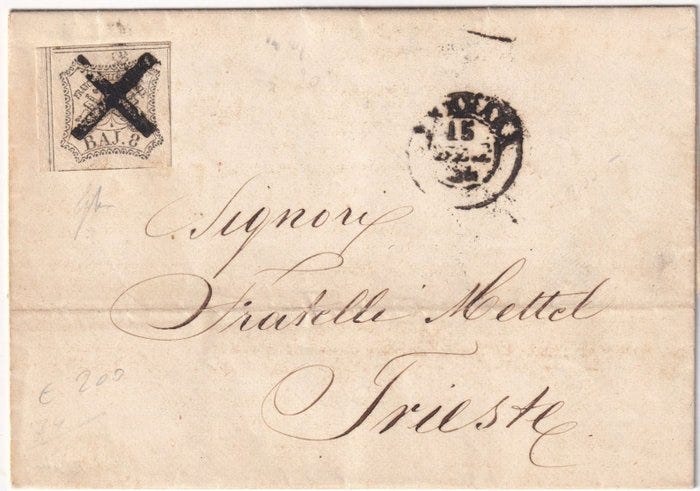 BAJ. 8
15
Signori
Fratelli Mettel
Trieste
€ 200